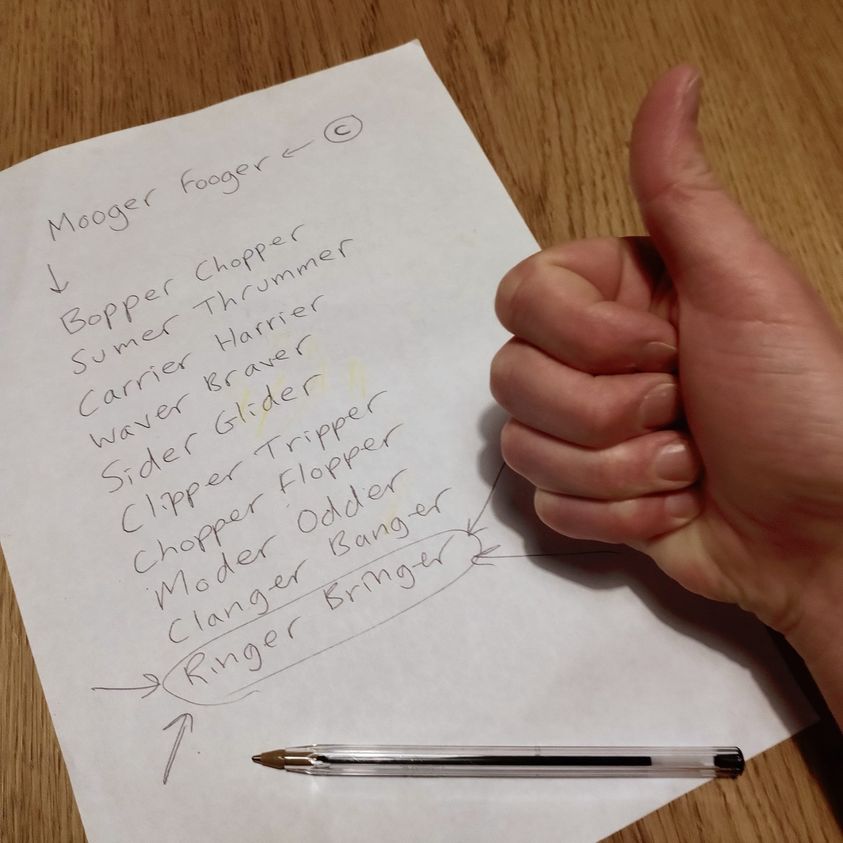 Mooger Fooger ← ©
↓
Bopper Chopper
Sumer Thrummer
Carrier Harrier
Waver Braver
Sider Glider
Clipper Tripper
Chopper Flopper
Moder Odder
Clanger Banger
Ringer Bringer